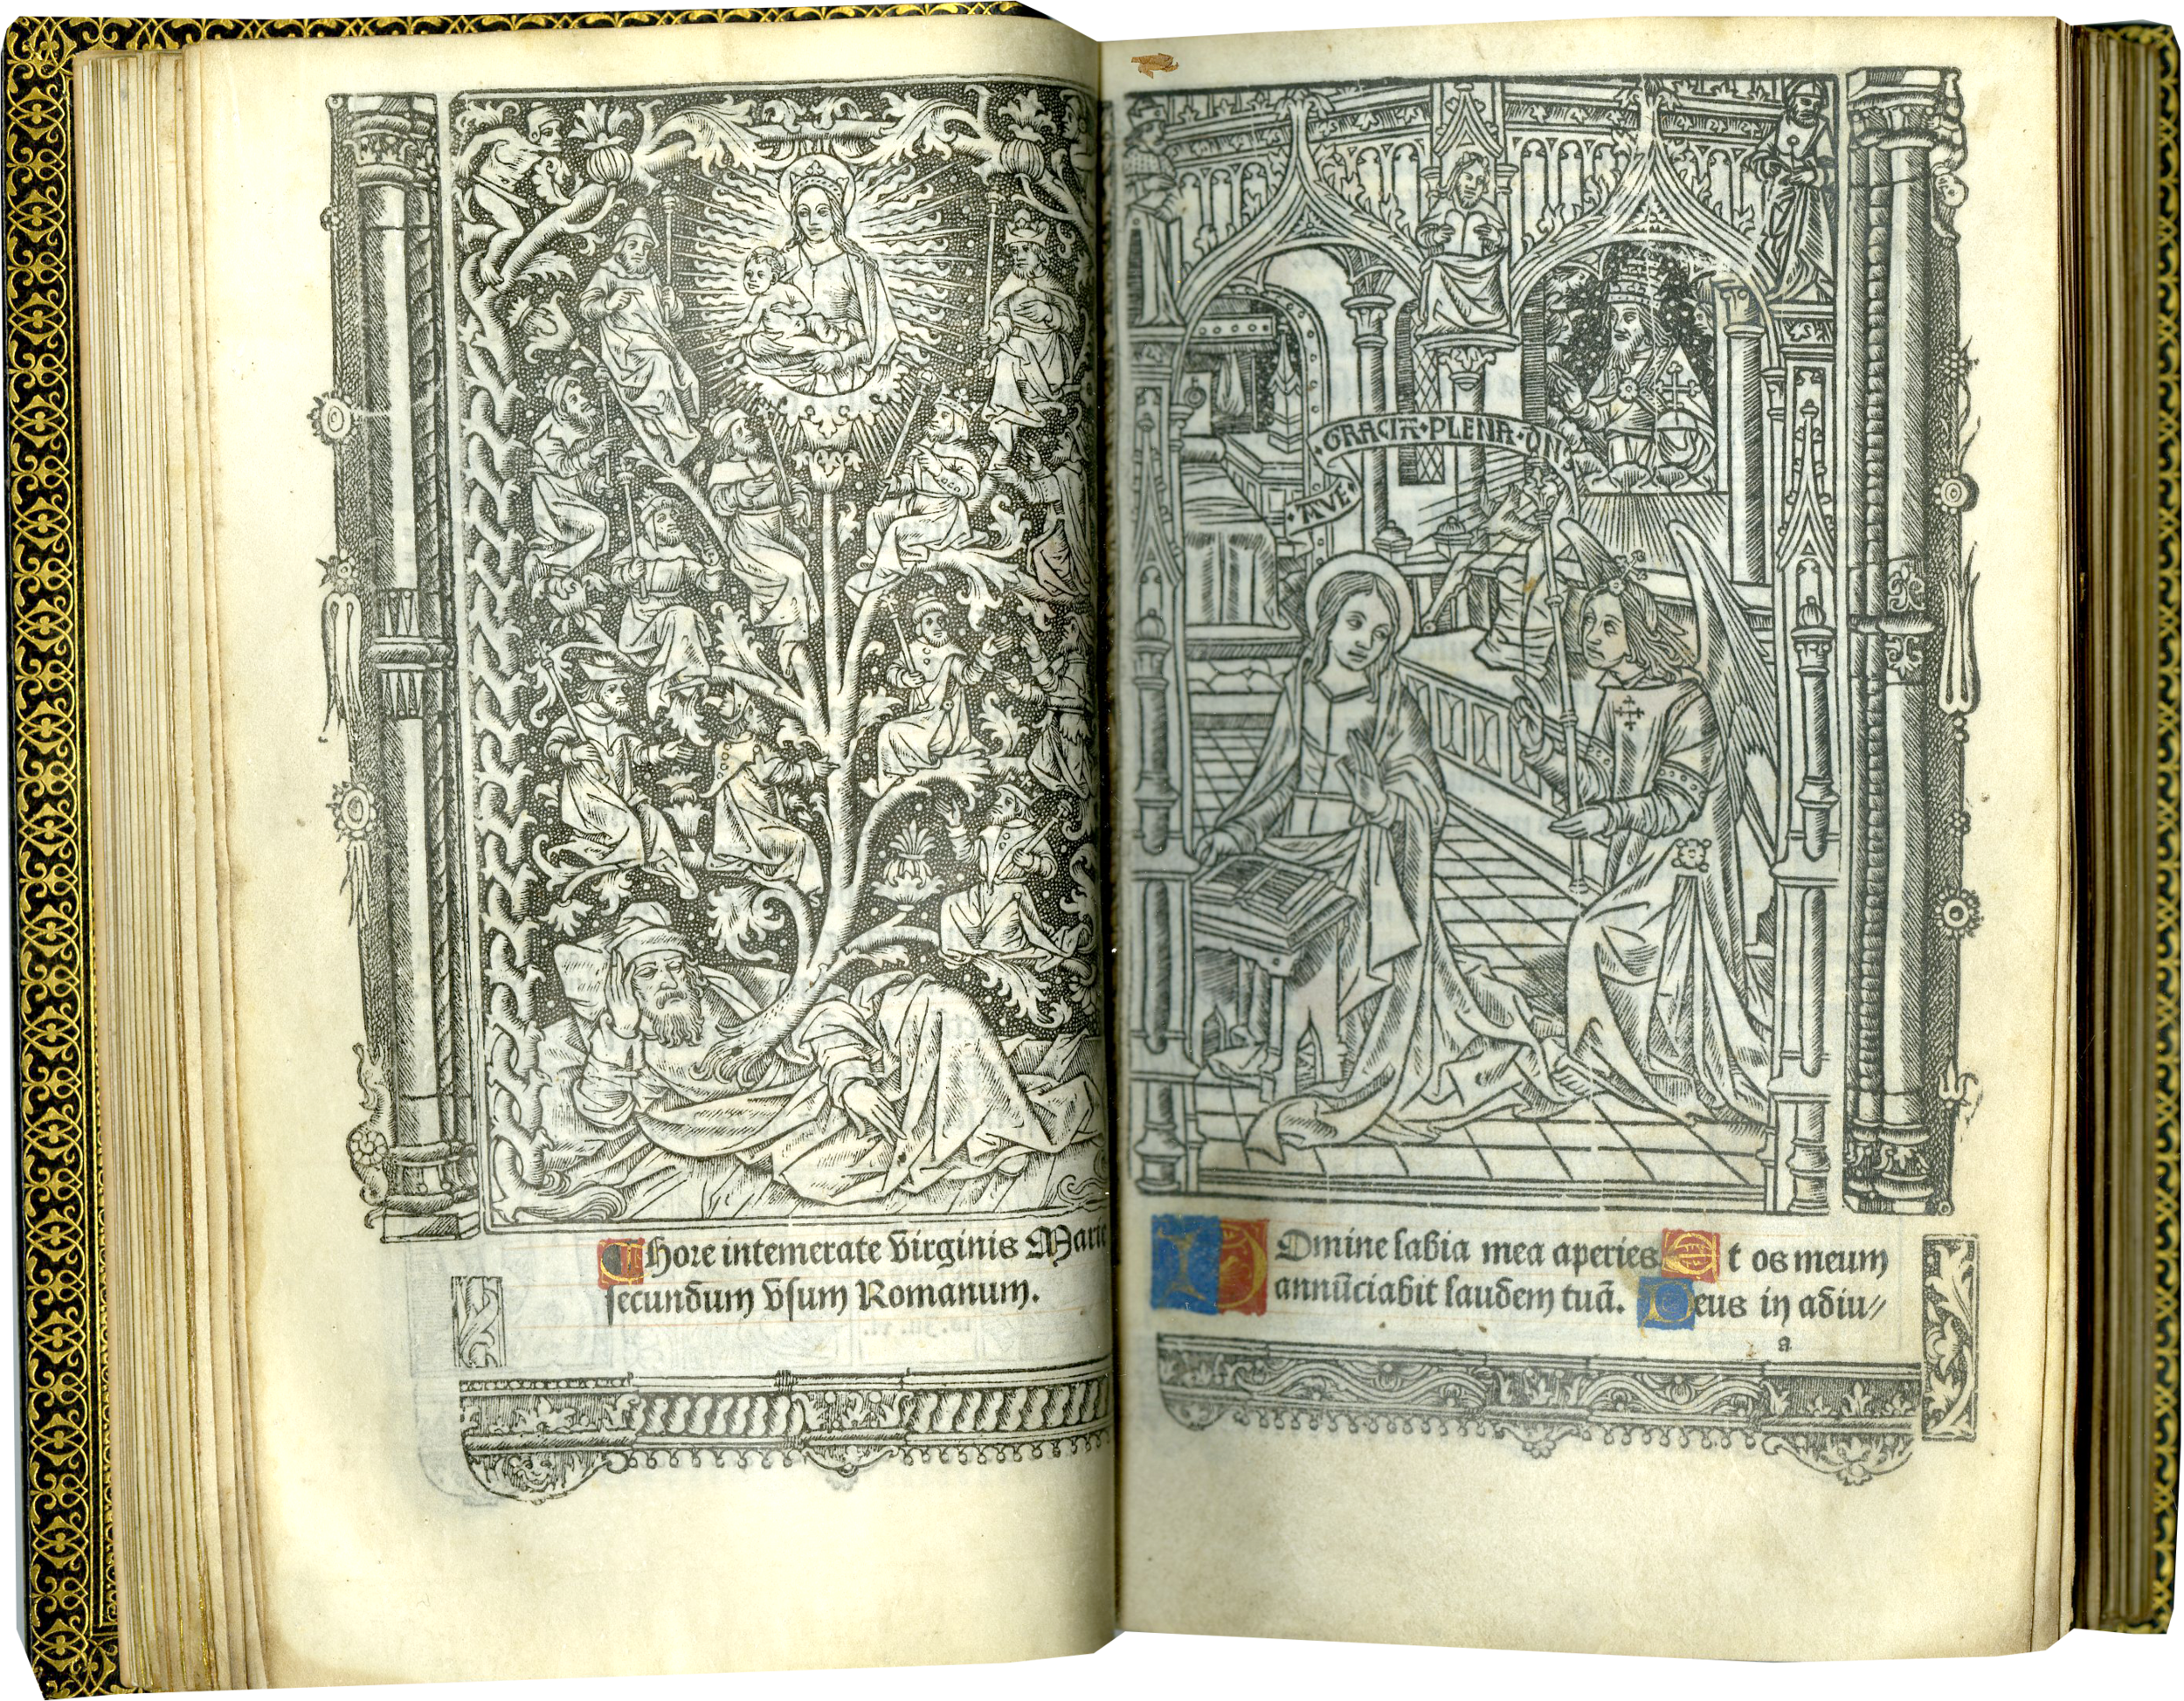 ¶ hore intemerate virginis Marie
secundum vsum Romanum.
AVE · GRACIA · PLENA · DNS
Domine labia mea aperies Et os meum
annūciabit laudem tuā. Deus in adiu//
a